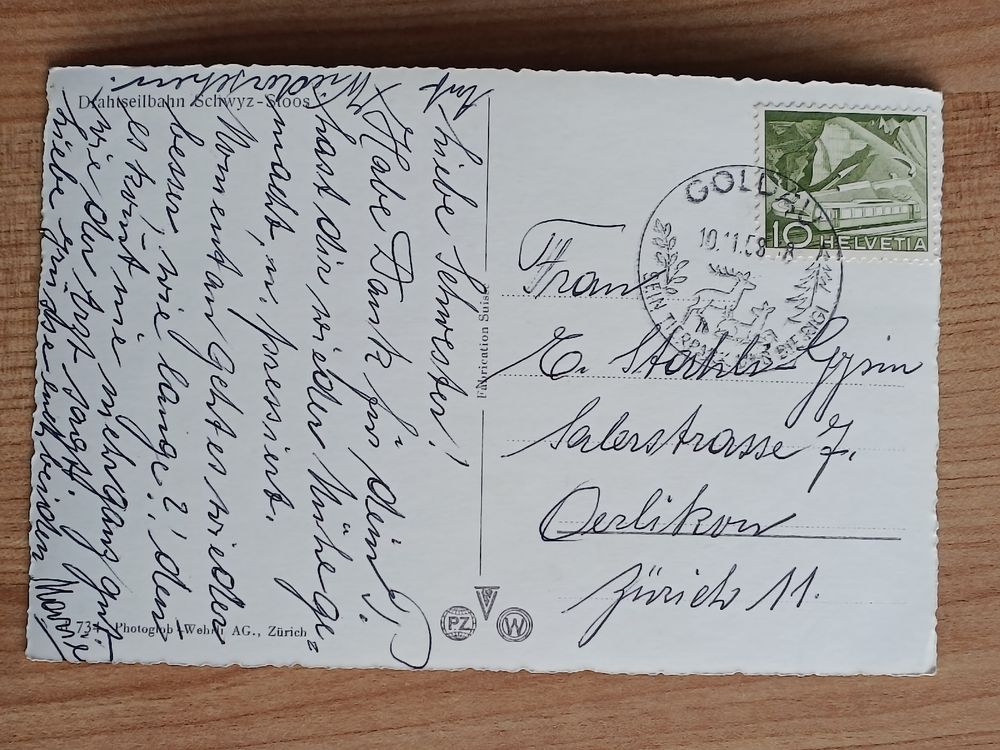 Drahtseilbahn Schwyz-Stoos
Auf
Wiedersehen.
Liebe Schwester!
Habe Dank für dein P.
hast dir wieder Mühe ge=
macht, u. pressiert.
Momentan geht es wieder
besser, wie lange?! denn
es kömt nie mehr ganz gut.
wie der Arzt sagt.
Liebe grüsse euch beiden
Fabrication Suisse
734 Photoglob-Wehrli AG., Zürich
PZ
W
GOLDAU
10.11.58
SEIN TIERPARK UND DIE RIGI
10 HELVETIA
Frau
E. Stähli-Gysin
Salerstrasse 7.
Oerlikon
Zürich 11.